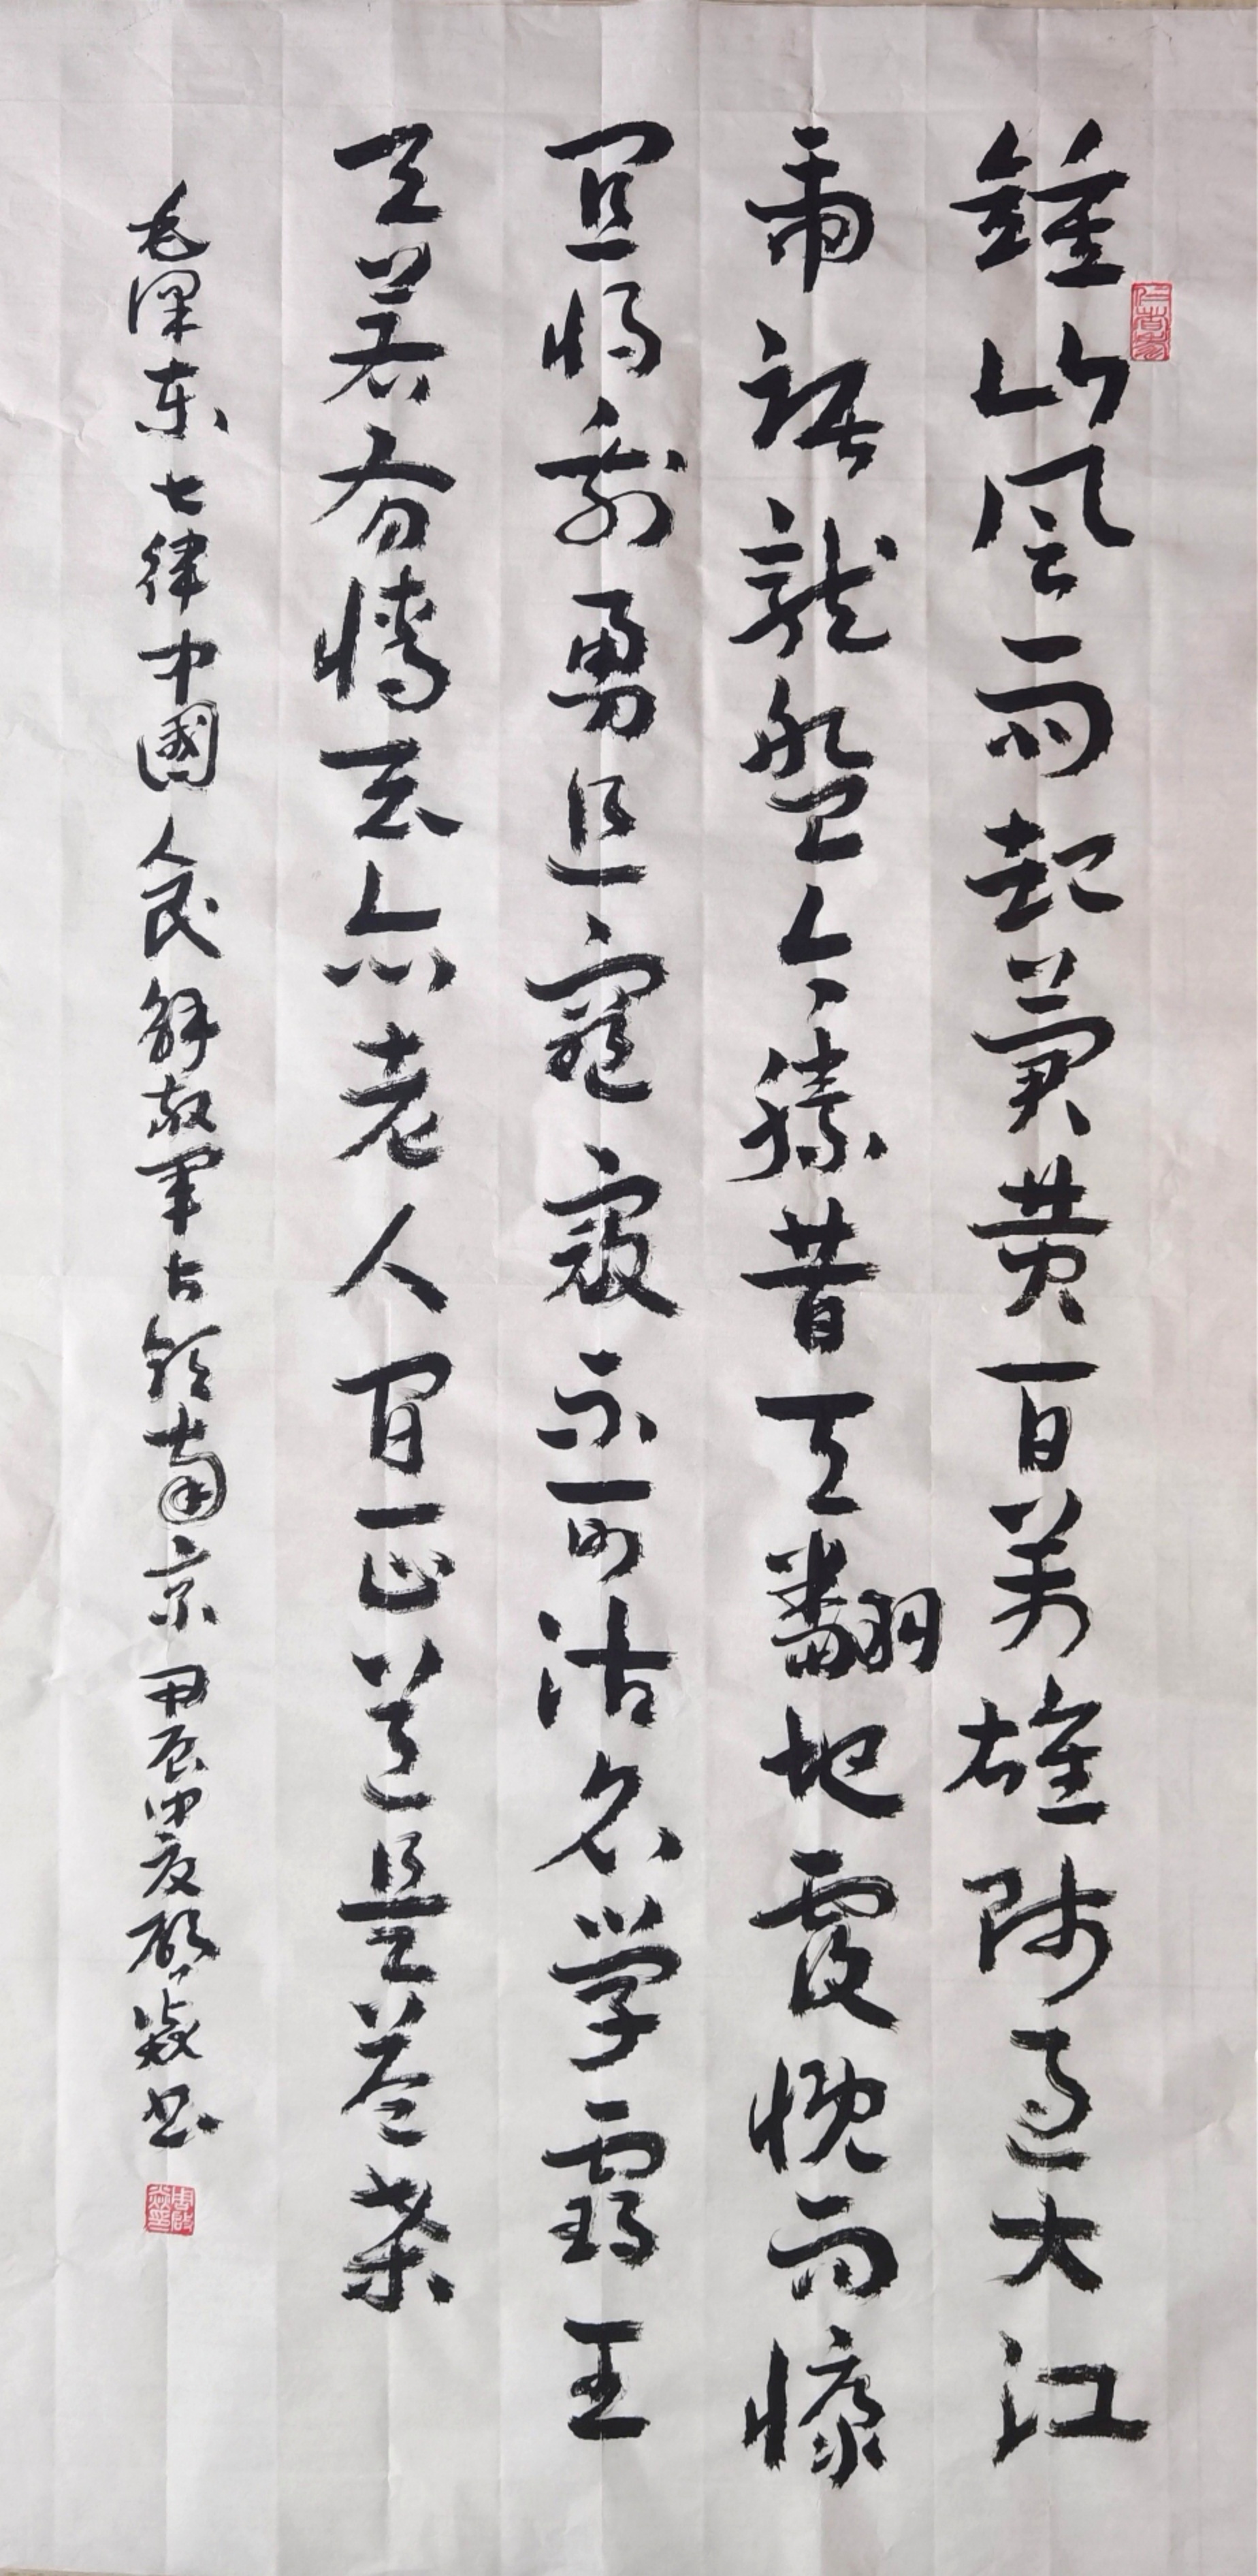 鍾山风雨起蒼黄百萬雄师过大江
虎踞龍盤今勝昔天翻地覆慨而慷
宜将剩勇追窮寇不可沽名学霸王
天若有情天亦老人间正道是苍桑
毛澤东七律中國人民解放军占领南京 甲辰仲夏啟焱书
仁者寿